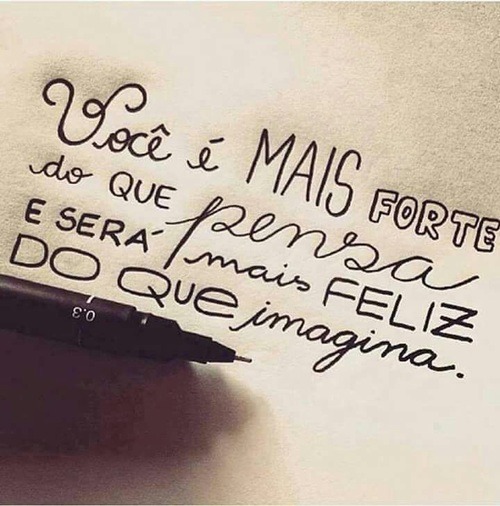 Você é MAIS FORTE
do QUE pensa
E SERÁ mais FELIZ
DO QUE imagina.
0.3